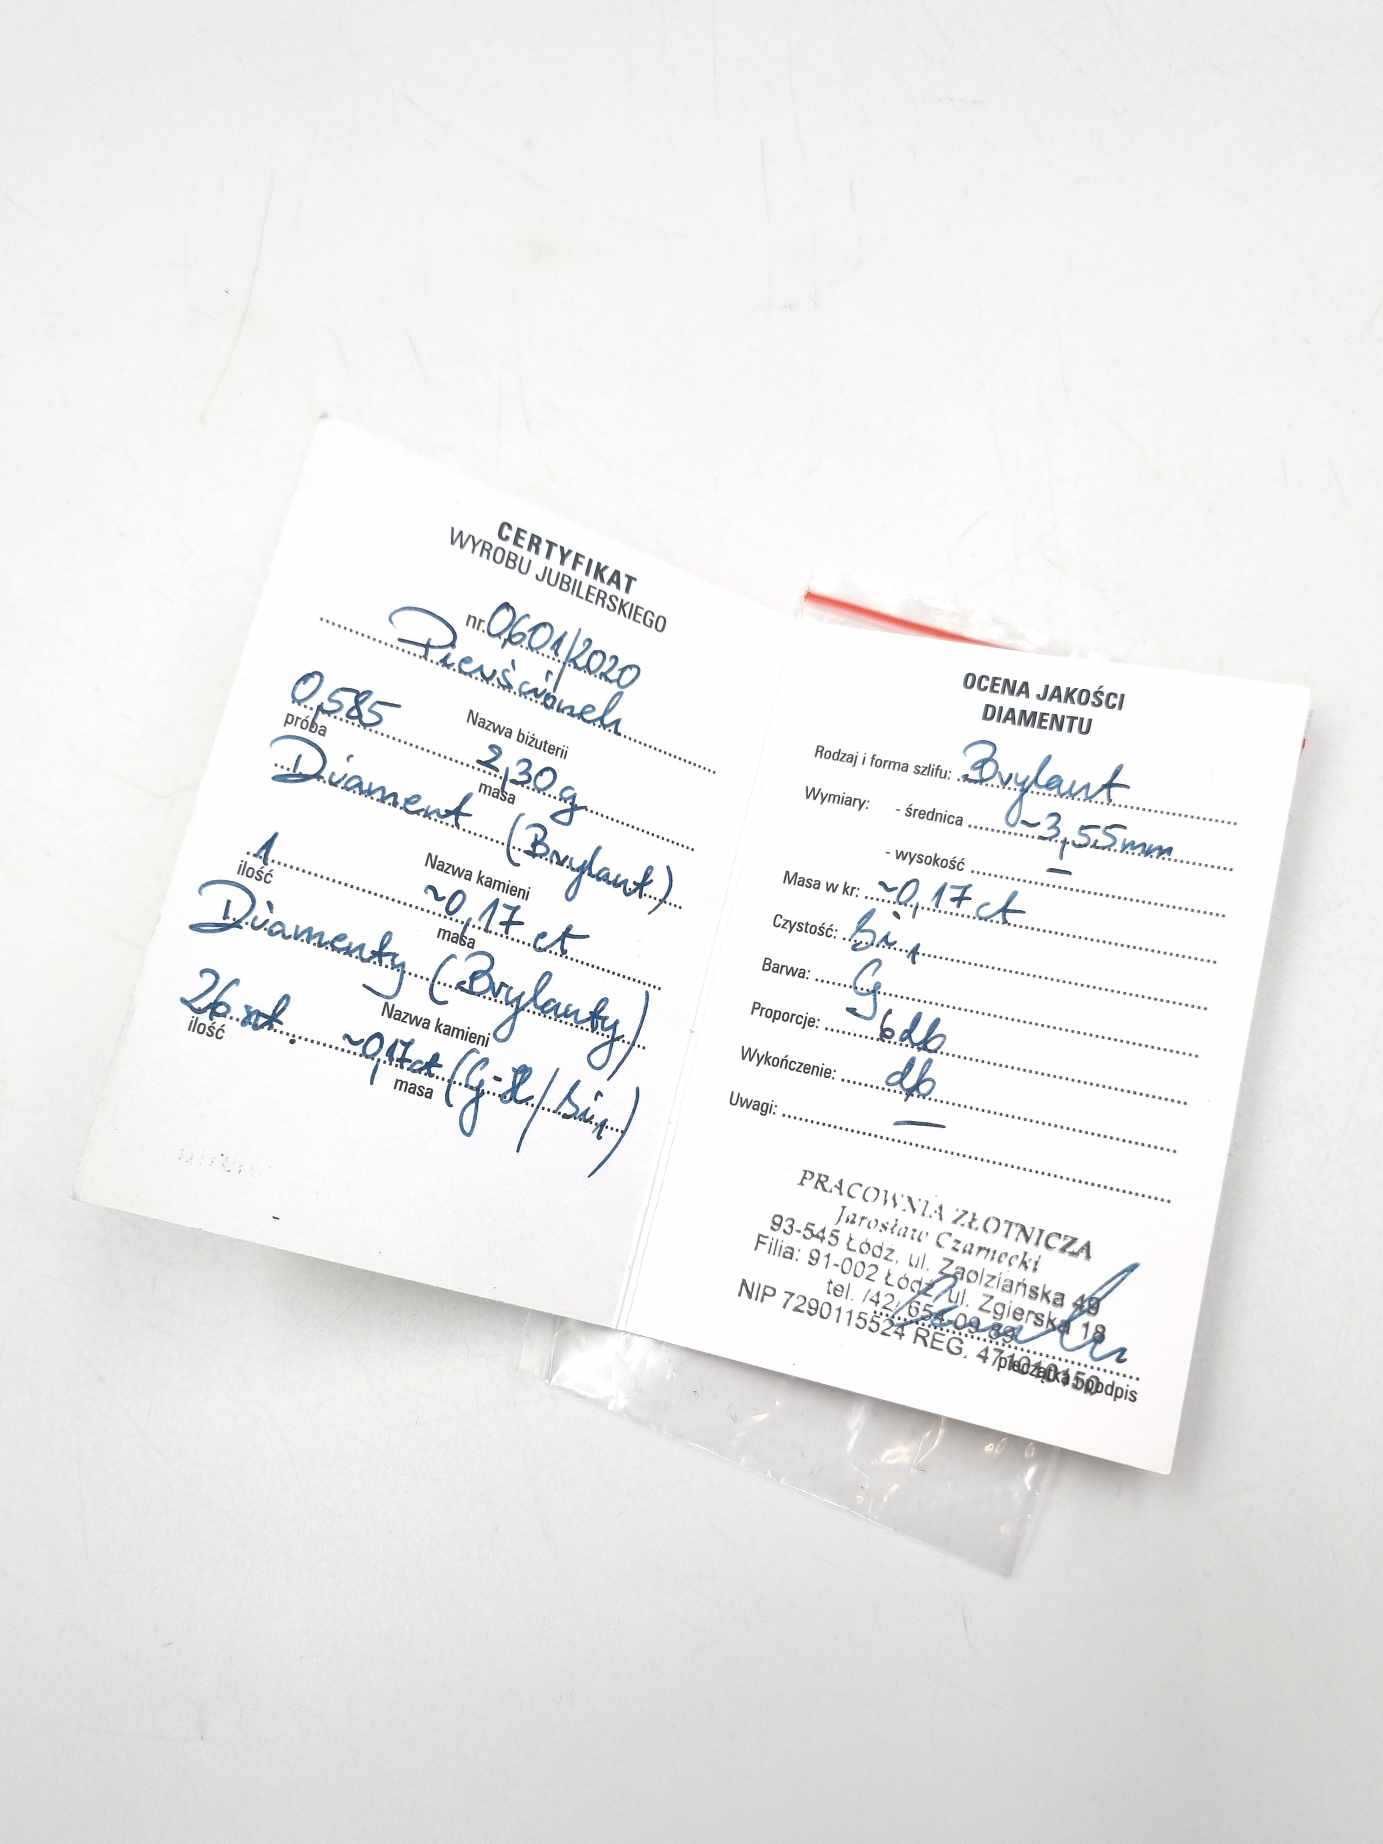 CERTYFIKAT
WYROBU JUBILERSKIEGO
nr. 0601/2020
Pierścionek
Nazwa biżuterii
0,585 2,30 g
próba masa
Diament (Brylant)
Nazwa kamieni
1 ~0,17 ct
ilość masa
Diamenty (Brylanty)
Nazwa kamieni
26 szt. ~0,17ct (G-H/Si1)
ilość masa
OCENA JAKOŚCI
DIAMENTU
Rodzaj i forma szlifu: Brylant
Wymiary: - średnica ~3,55mm
- wysokość –
Masa w kr: ~0,17 ct
Czystość: Si1
Barwa: G
Proporcje: bdb
Wykończenie: db
Uwagi: –
PRACOWNIA ZŁOTNICZA
Jarosław Czarnecki
93-545 Łódź, ul. Zaolziańska 49
Filia: 91-002 Łódź, ul. Zgierska 18
tel. /42/ 654-09-89
NIP 7290115524 REG. 471010150
pieczątka i podpis